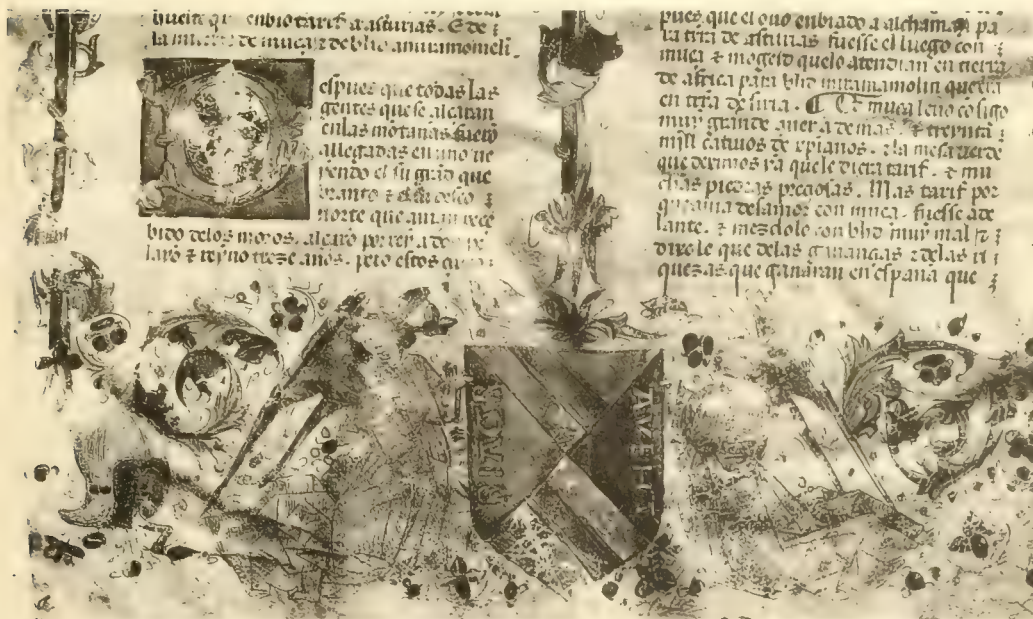 la muerte de muça ⁊ de vlid amiramomeli
espues que todas las
gentes que se alcaran
en las mōtanas fuerō
allegadas en uno ve
yendo el su grād que
branto ⁊ el
norte que auian rece
bido delos moros. alcarō por rey a don pe
layo ⁊ reyno treze anos. pero estos
pues que el ouo enbiado a alchaman pa
ra trra de asturias fuesse el luego con
muça ⁊ mogeid quelo atendian en tierra
de africa para vlid miramamolin que era
en trra de siria. ¶ E muça leuo cōsigo
muy grande auer a demas. ⁊ treynta
mill catiuos de xpianos. ⁊ la mesa verde
que dexímos ya quele diera tarif. ⁊ mu
chas piedras preciosas. Mas tarif por
que auia desamor con muça. fuesse ade
lante. ⁊ mezclolo con vlid muy mal ⁊
dixole que delas ganancias ⁊ delas ri
quezas que ganaran en espana que
AVE MA
GRACIA